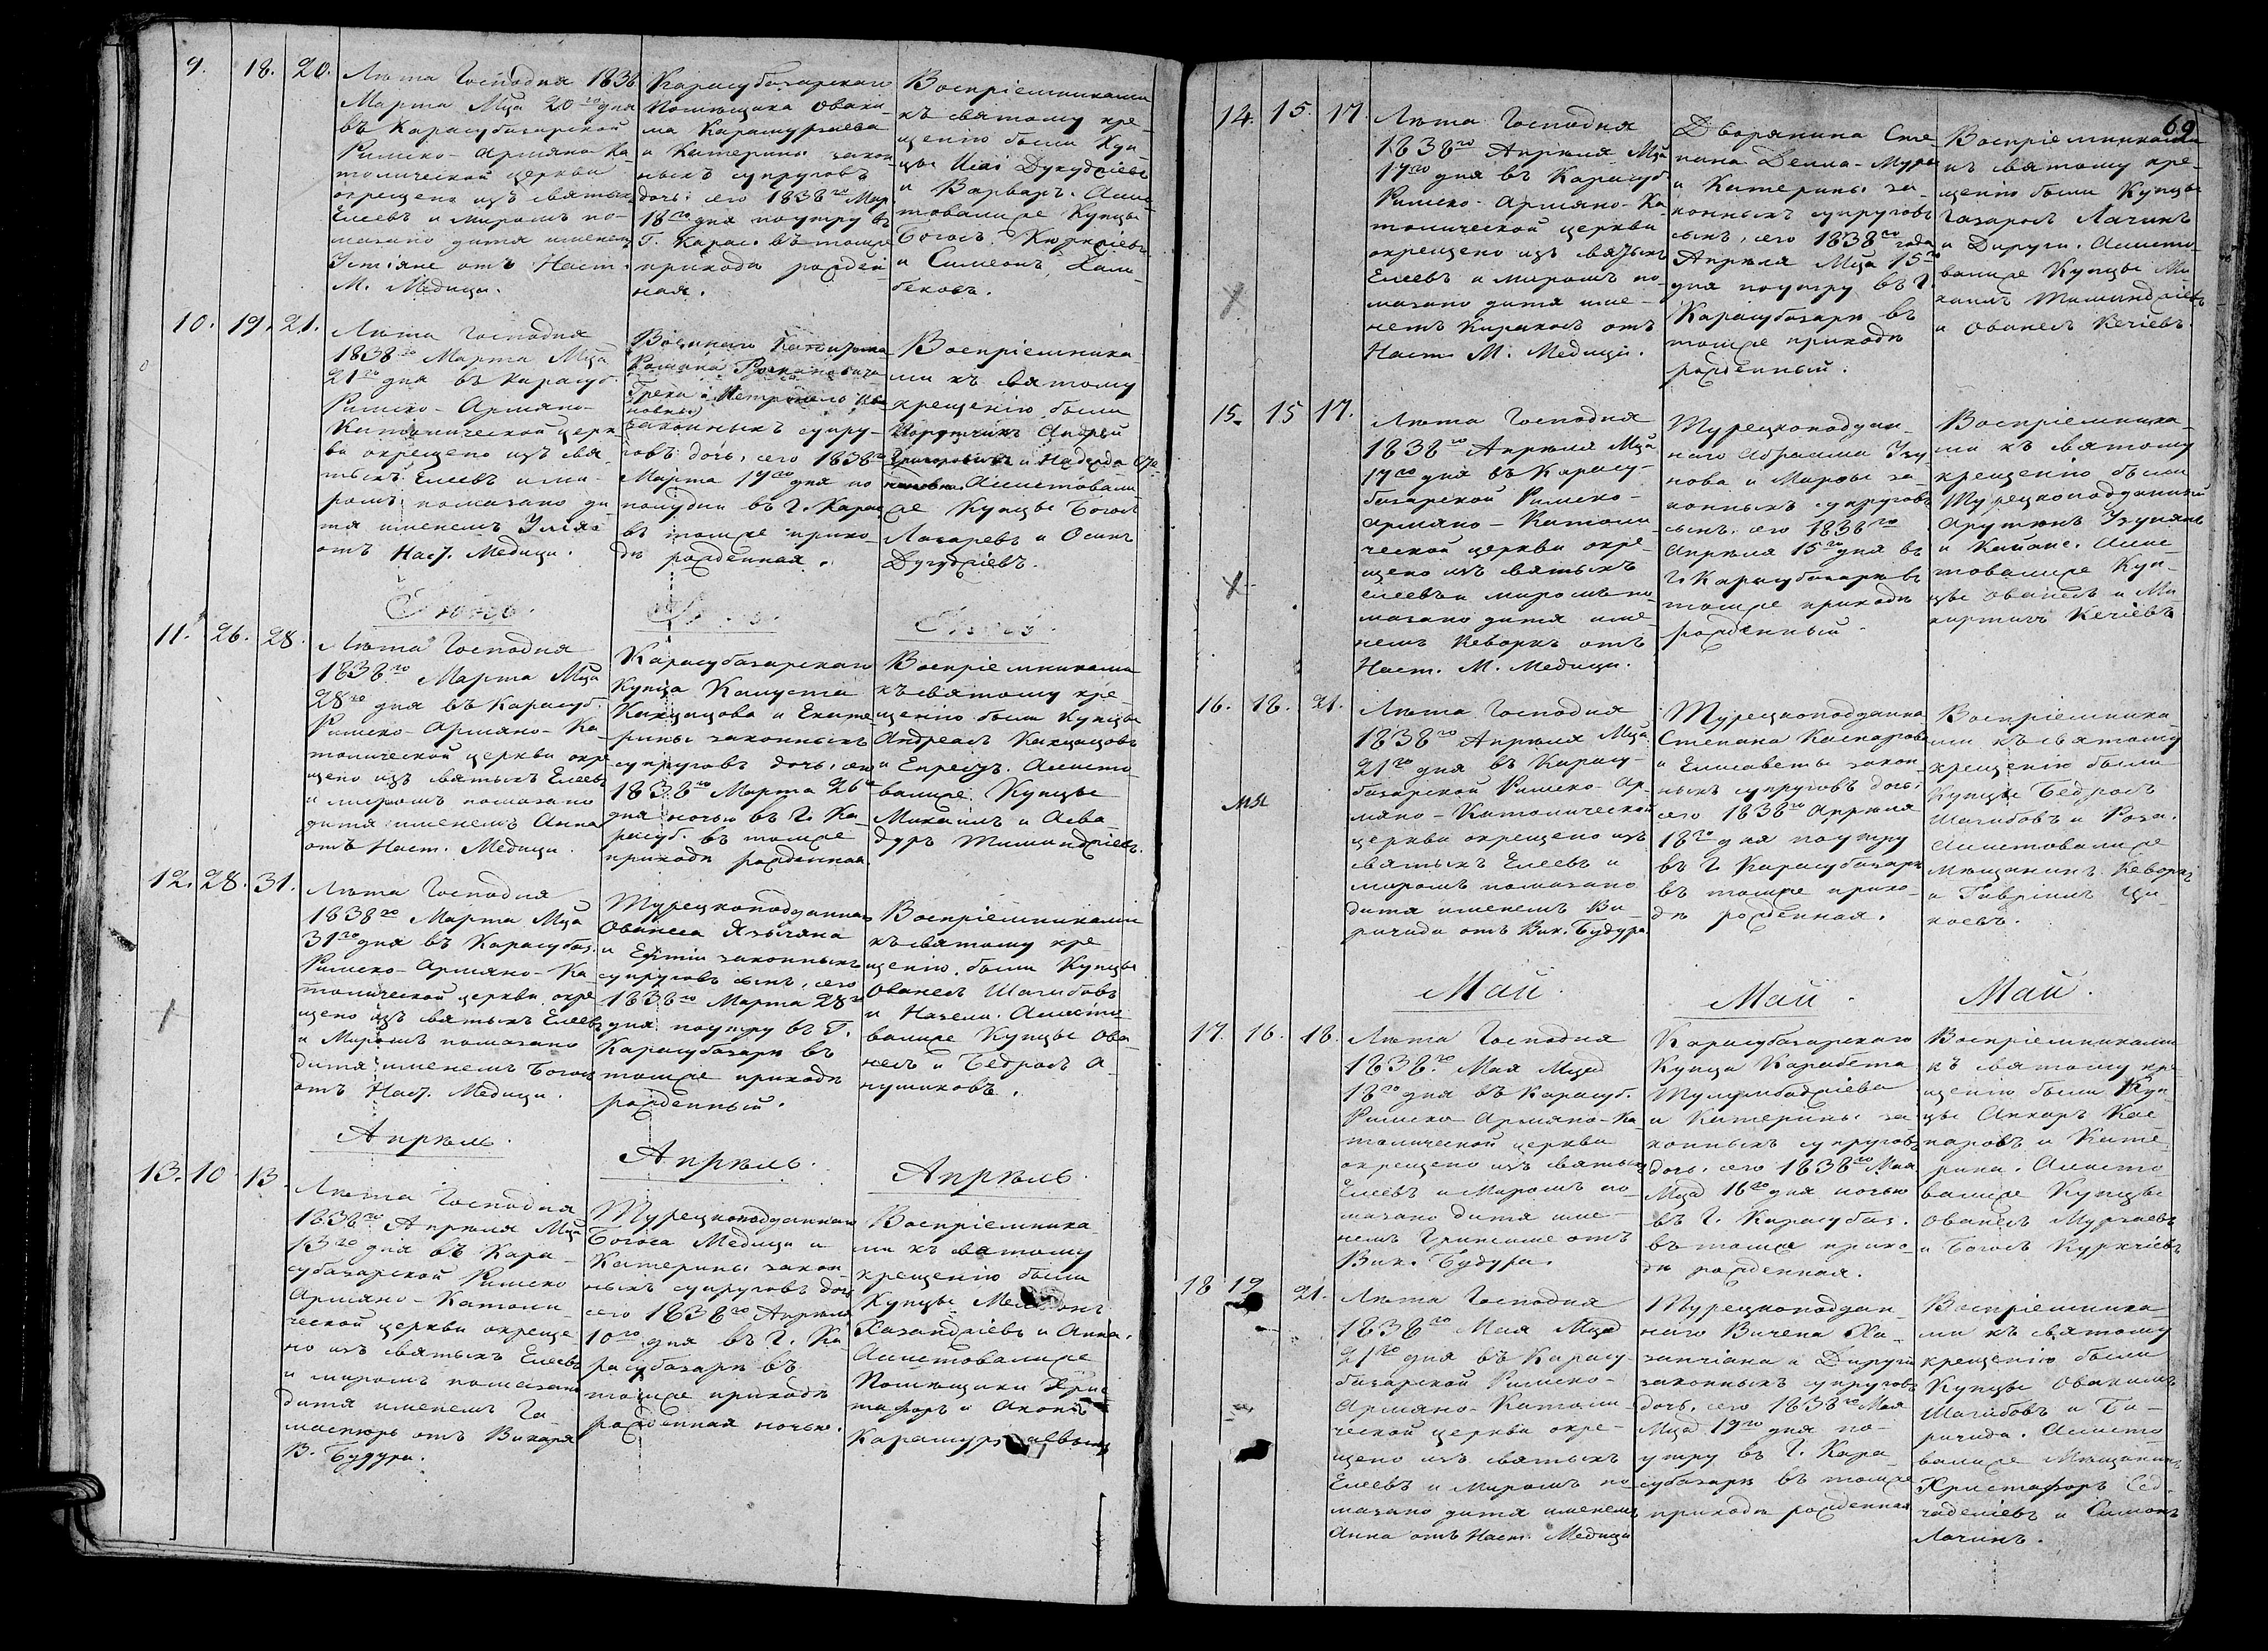 9. 18. 20.
Лѣта Господня 1838
Марта Мца 20го дня
въ Карасубазарской
Римско-Армяно Ка-
толической церкви
окрещено изъ святыхъ
Елеевъ и миромъ по-
мазано дитя именемъ
отъ Наст.
М. Медици.
Карасубазарскаго
Помѣщика Оваки-
ма Карамурзаева
и Катерины закон
ныхъ супруговъ
дочь, сего 1838го Мар
18го дня поутру въ
Г. Карас. въ томже
приходѣ рожден
ная.
Воспріемниками
къ святому кре-
щенію были Куп-
цы
и Варваръ. Асис-
товалиже Купцы
Богосъ
и Симеонъ Хали-
бековъ.
10. 19. 21.
Лѣта Господня
1838го Марта Мца
21го дня въ Карасуб.
Римско-Армяно-
Католической церк
ви окрещено изъ свя-
тыхъ Елеевъ и ми-
ромъ помазано ди
тя именемъ
отъ Наст. Медици.
Военнаго
Романа Романовича
Грека и
законныхъ супру-
говъ дочь, сего 1838го
Марта 19го дня по
полудни въ Г. Карас
въ томже прихо-
дѣ рожденная.
Воспріемника-
ми къ святому
крещенію были
Порутчикъ Андрей
Григоровичъ и Надежда
Асистовали
же Купцы Богосъ
Лазаревъ и Осипъ
11. 26. 28.
Лѣта Господня
1838го Марта Мца
28го дня въ Карасуб.
Римско-Армяно-Ка-
толической церкви окре
щено изъ святыхъ Елеевъ
и миромъ помазано
дитя именемъ Анна
отъ Наст. Медици.
Карасубазарскаго
Купца Калуста
и Екате-
рины законныхъ
супруговъ дочь, сего
1838го Марта 26го
дня ночью въ Г. Ка-
расуб. въ томже
приходѣ рожденная.
Воспріемниками
къ святому кре-
щенію были Купцы
Андреасъ
и Асисто-
валиже Купцы
Михаилъ и Асва-
дуръ
12. 28. 31.
Лѣта Господня
1838го Марта Мца
31го дня въ Карасубаз.
Римско-Армяно-Ка
толической церкви окре
щено изъ святыхъ Елеевъ
и Миромъ помазано
дитя именемъ Богосъ
отъ Наст. Медици.
Турецкоподданнаго
Ованеса Язычяна
и законныхъ
супруговъ сынъ, сего
1838го Марта 28го
дня поутру въ Г.
Карасубазарѣ въ
томже приходѣ
рожденный.
Воспріемниками
къ святому кре-
щенію были Купцы
Ованесъ Шагибовъ
и Назели. Асисто
валиже Купцы Ова-
несъ и Бедросъ А-
нушиковъ.
Апрѣль.
Апрѣль.
Апрѣль.
13. 10 13.
Лѣта Господня
1838го Апрѣля Мца
13го дня въ Кара-
субазарской Римско
Армяно-Католи-
ческой церкви окреще
но изъ святыхъ Елеевъ
и миромъ помазано
дитя именемъ Га-
отъ Викаря
В. Будура.
Турецкоподданнаго
Богоса Медици и
Катерины закон-
ныхъ супруговъ дочь
сего 1838го Апрѣля
10го дня въ Г. Ка-
расубазарѣ въ
томже приходѣ
рожденная ночью.
Воспріемника-
ми къ святому
крещенію были
Купцы
и Анна.
Асистовалиже
Помѣщики Хрис
тафоръ и Акопъ
69
14. 15. 17.
Лѣта Господня
1838го Апрѣля Мца
17го дня въ Карасуб.
Римско-Армяно-Ка-
толической церкви
окрещено изъ святыхъ
Елеевъ и миромъ по-
мазано дитя име-
немъ Киракосъ отъ
Наст. М. Медици.
Дворянина Сте-
пана
и Катерины за-
конныхъ супруговъ
сынъ, сего 1838го года
Апрѣля Мца 15го
дня поутру въ Г.
Карасубазарѣ въ
томже приходѣ
рожденный.
Воспріемниками
къ святому кре-
щенію были Купцы
Газаросъ Лачинъ
и Дируги. Асисто-
валиже Купцы Ми
хаилъ
и Ованесъ Кечіевъ.
15. 15 17.
Лѣта Господня
1838го Апрѣля Мца
17го дня въ Карасу-
базарской Римско-
Армяно-Католи-
ческой церкви окре-
щено изъ святыхъ
елеевъ и миромъ по-
мазано дитя име-
немъ Кеворкъ отъ
Наст. М. Медици.
Турецкоподдан-
наго Абраама Узу-
нова и Марѳы за-
конныхъ супруговъ
сынъ, сего 1838го
Апрѣля 15го дня въ
Г. Карасубазарѣ въ
томже приходѣ
рожденный.
Воспріемника-
ми къ святому
крещенію были
Турецкоподданный
Арутюнъ Узунянъ
и Асис-
товалиже Куп-
цы Ованесъ и Ми-
киртичъ Кечіевъ
16. 18. 21.
Лѣта Господня
1838го Апрѣля Мца
21го дня въ Карасу-
базарской Римско-Ар-
мяно-Католической
церкви окрещено изъ
святыхъ Елеевъ и
миромъ помазано
дитя именемъ Ви-
отъ Вик. Будура.
Турецкоподданна
Степана Каспарова
и Елисаветы закон-
ныхъ супруговъ дочь,
сего 1838го Апрѣля
18го дня поутру
въ Г. Карасубазарѣ
въ томже прихо-
дѣ рожденная.
Воспріемника-
ми къ святому
крещенію были
Купцы Бедросъ
Шагибовъ и Роза.
Асистовалиже
Мѣщанинъ Кеворкъ
и Гавріилъ
Май.
Май.
Май.
17. 16. 18.
Лѣта Господня
1838го Мая Мца
18го дня въ Карасуб.
Римско Армяно-Ка-
толической церкви
окрещено изъ святыхъ
Елеевъ и Миромъ по-
мазано дитя име-
немъ Грипсиме отъ
Вик. Будура.
Карасубазарскаго
Купца Карабета
и Катерины за-
конныхъ супруговъ
дочь, сего 1838го Мая
Мца 16го дня ночью
въ Г. Карасубаз.
въ томже прихо-
дѣ рожденная.
Воспріемниками
къ святому кре-
щенію были Куп-
цы Кас-
паровъ и Кате-
рина. Асисто
валиже Купцы
Ованесъ Мурзаевъ
и Богосъ Куркчіевъ
18 19 21.
Лѣта Господня
1838го Мая Мца
21го дня въ Карасу-
базарской Римско-
Армяно-Католи-
ческой церкви окре-
щено изъ святыхъ
Елеевъ и Миромъ по
мазано дитя именемъ
Анна отъ Наст. Медици
Турецкоподдан-
наго Вичена Ха-
занчіана и Дируги
законныхъ супруговъ
дочь, сего 1838го Мая
Мца 19го дня по-
утру въ Г. Кара-
субазарѣ въ томже
приходѣ рожденная
Воспріемника-
ми къ святому
крещенію были
Купцы Овакимъ
Шагибовъ и
Асисто
валиже Мѣщанинъ
Христафоръ
и Симонъ
Лачинъ.